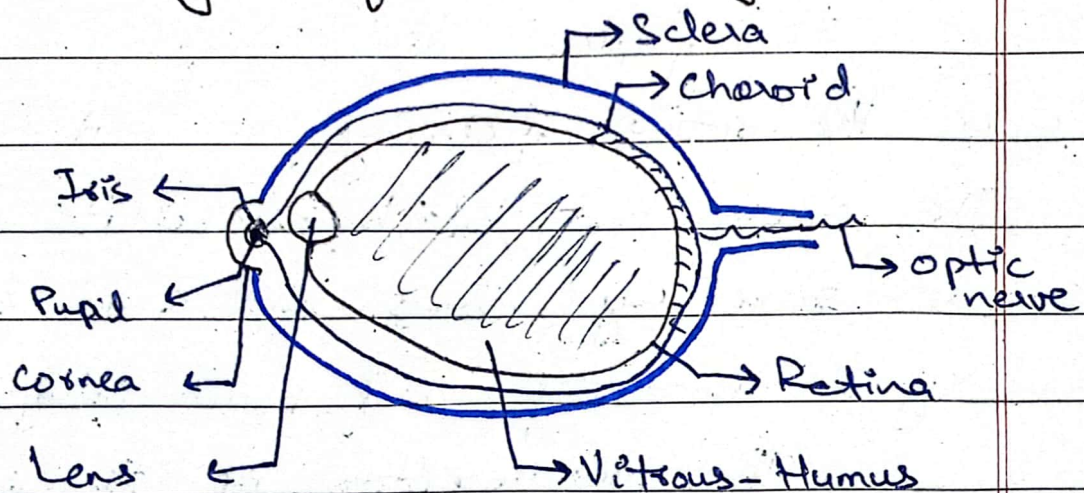 Sclera
Choroid
Iris
Pupil
Cornea
Lens
optic
nerve
Retina
Vitrous-Humus